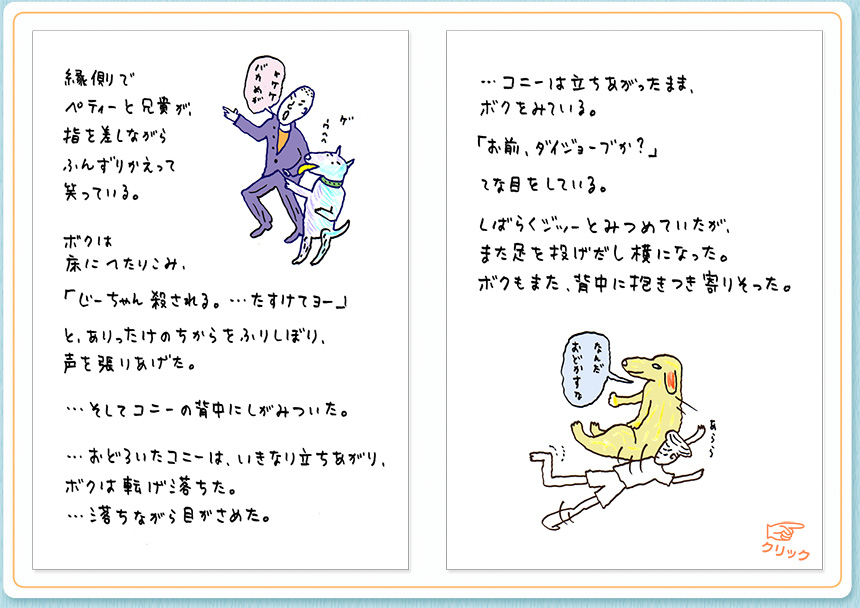 縁側で
ペティーと兄貴が、
指を差しながら
ふんずりかえって
笑っている。
ケケケ
バカめが
ゲ
ウウウ
ボクは
床にへたりこみ、
「じーちゃん殺される。…たすけてヨー」
と、ありったけのちからをふりしぼり、
声を張りあげた。
…そしてコニーの背中にしがみついた。
…おどろいたコニーは、いきなり立ちあがり、
ボクは転げ落ちた。
…落ちながら目がさめた。
…コニーは立ちあがったまま、
ボクをみている。
「お前、ダイジョーブか？」
てな目をしている。
しばらくジッーとみつめていたが、
また足を投げだし横になった。
ボクもまた、背中に抱きつき寄りそった。
なんだ
おどかすな
あららら
クリック